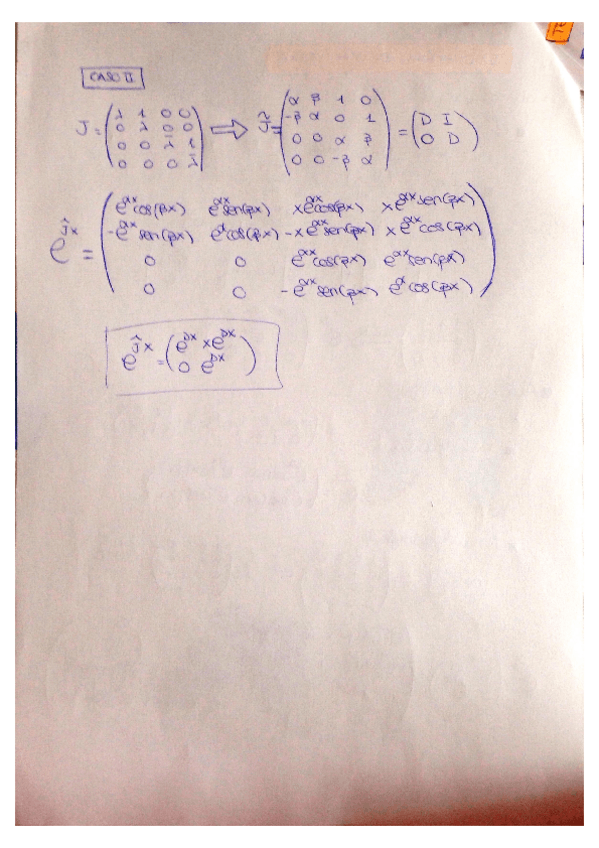 CASO II
J = ( λ 1 0 0 ; 0 λ 0 0 ; 0 0 λ̄ 1 ; 0 0 0 λ̄ ) ⟹ Ĵ = ( α β 1 0 ; -β α 0 1 ; 0 0 α β ; 0 0 -β α ) = ( D I ; 0 D )
e^{Ĵx} = ( e^{αx}cos(βx) e^{αx}sen(βx) xe^{αx}cos(βx) xe^{αx}sen(βx)
-e^{αx}sen(βx) e^{α}cos(βx) -xe^{αx}sen(βx) xe^{αx}cos(βx)
0 0 e^{αx}cos(βx) e^{αx}sen(βx)
0 0 -e^{αx}sen(βx) e^{α}cos(βx) )
e^{Ĵx} = ( e^{Dx} xe^{Dx} ; 0 e^{Dx} )